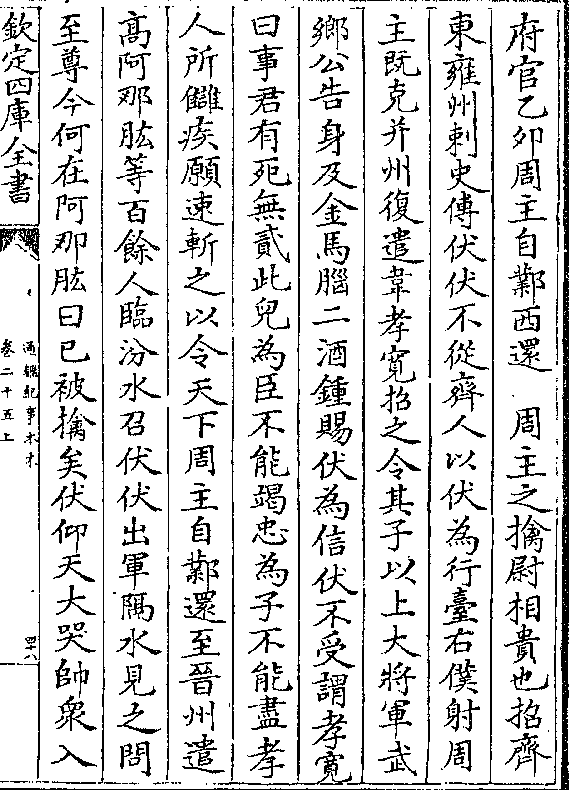 府官乙夘周主自鄴西還　周主之擒尉相貴也招齊
東雍州刺史傅伏伏不從齊人以伏為行臺右僕射周
主既克并州復遣韋孝寛招之令其子以上大將軍武
鄉公告身及金馬腦二酒鍾賜伏為信伏不受謂孝寛
曰事君有死無貳此兒為臣不能竭忠為子不能盡孝
人所讎疾願速斬之以令天下周主自鄴還至晉州遣
髙阿那肱等百餘人臨汾水召伏伏出軍隔水見之問
至尊今何在阿那肱曰已被擒矣伏仰天大哭帥衆入
欽定四庫全書
通鑑紀事本末
卷二十五上
四六